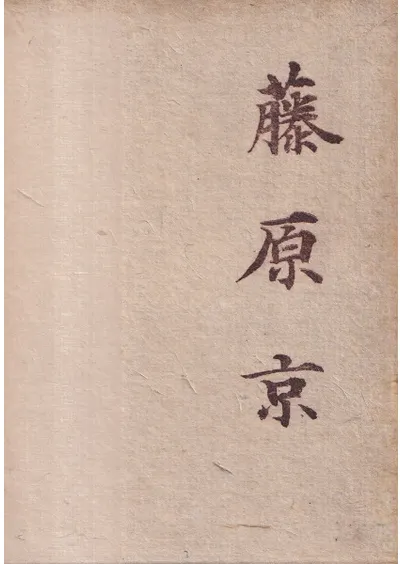 藤原京